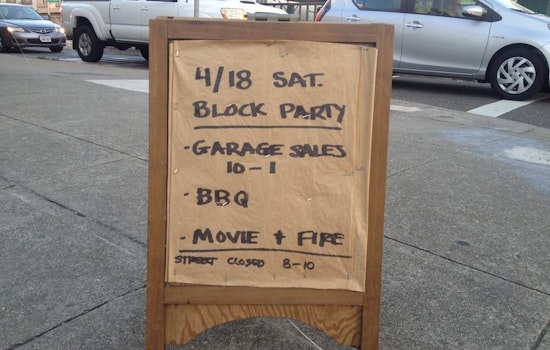 4/18 SAT.
BLOCK PARTY
- GARAGE SALES
10-1
- BBQ
- MOVIE + FIRE
STREET CLOSED 8-10